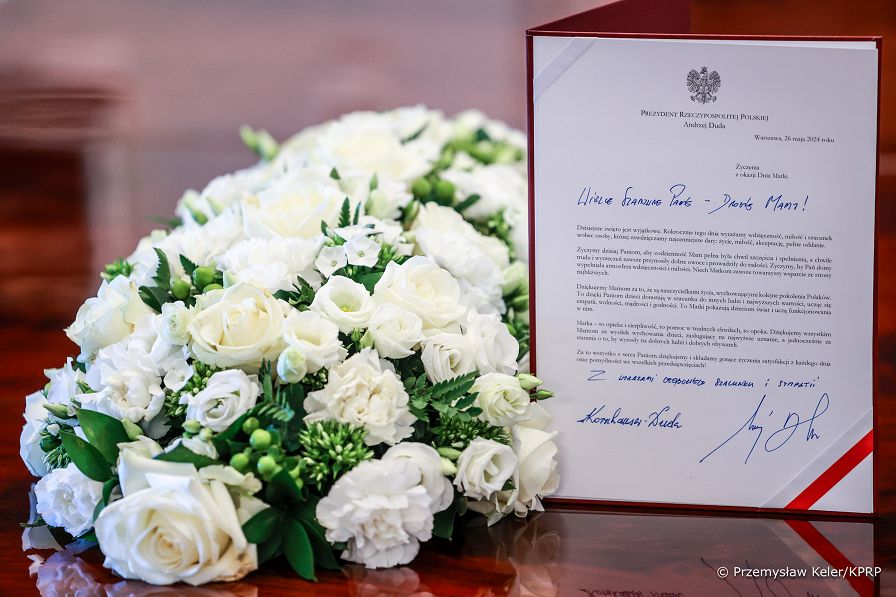 PREZYDENT RZECZYPOSPOLITEJ POLSKIEJ
Andrzej Duda
Warszawa, 26 maja 2024 roku
Życzenia
z okazji Dnia Matki
Wielce Szanowne Panie – Drogie Mamy!
Dzisiejsze święto jest wyjątkowe. Rokrocznie tego dnia wyrażamy wdzięczność, miłość i szacunek
wobec osoby, której zawdzięczamy najcenniejsze dary: życie, miłość, akceptację, pełne oddanie.
Życzymy dzisiaj Paniom, aby codzienność Mam pełna była chwil szczęścia i spełnienia, a chwile
trudu i wyrzeczeń zawsze przynosiły dobre owoce i prowadziły do radości. Życzymy, by Pań domy
wypełniała atmosfera wdzięczności i miłości. Niech Matkom zawsze towarzyszy wsparcie ze strony
najbliższych.
Dziękujemy Mamom za to, że są nauczycielkami życia, wychowującymi kolejne pokolenia Polaków.
To dzięki Paniom dzieci dorastają w szacunku do innych ludzi i najwyższych wartości, ucząc się
empatii, wolności, mądrości i godności. To Matki pokazują dzieciom świat i uczą funkcjonowania
w nim.
Matka – to opieka i cierpliwość, to pomoc w trudnych chwilach, to opoka. Dziękujemy wszystkim
Mamom za wysiłek wychowania dzieci, zasługujący na najwyższe uznanie, a jednocześnie za
starania o to, by wyrosły na dobrych ludzi i dobrych obywateli.
Za to wszystko z serca Paniom dziękujemy i składamy gorące życzenia satysfakcji z każdego dnia
oraz pomyślności we wszelkich przedsięwzięciach!
Z wyrazami głębokiego szacunku i sympatii
Kornhauser-Duda
© Przemysław Keler/KPRP